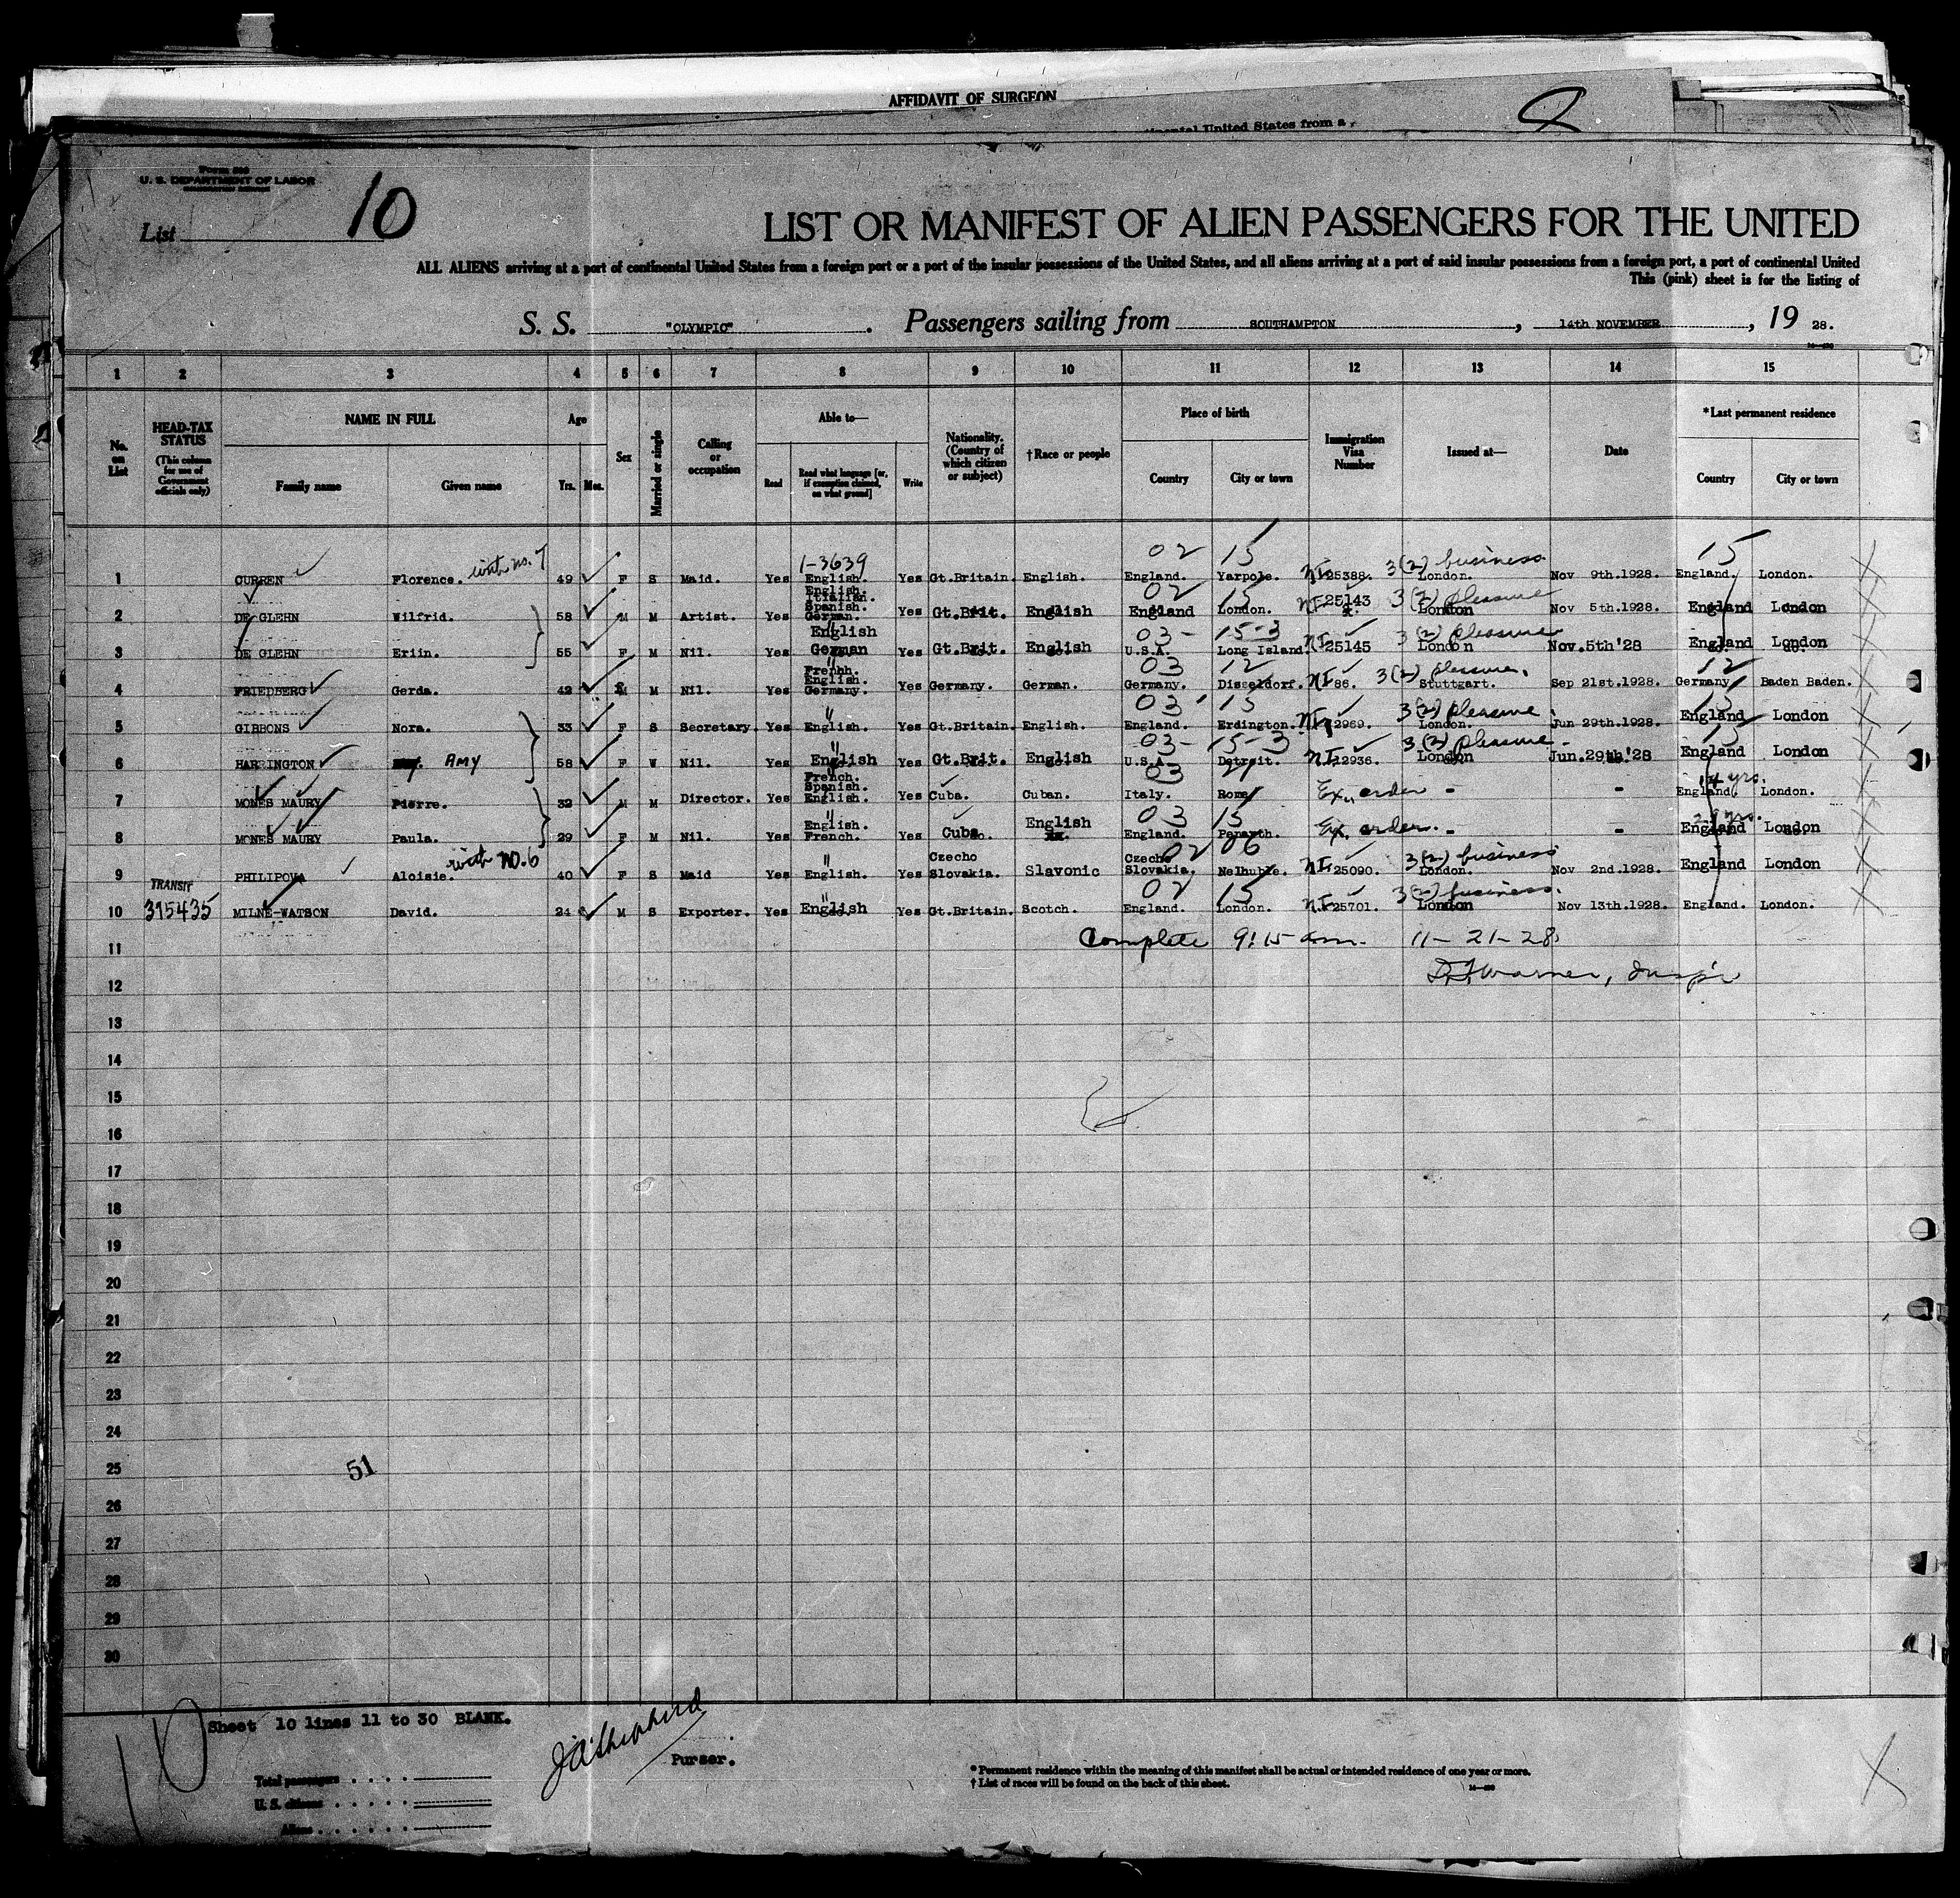 AFFIDAVIT OF SURGEON
United States from a
U. S. DEPARTMENT OF LABOR
List 10
LIST OR MANIFEST OF ALIEN PASSENGERS FOR THE UNITED
ALL ALIENS arriving at a port of continental United States from a foreign port or a port of the insular possessions of the United States, and all aliens arriving at a port of said insular possessions from a foreign port, a port of continental United
This (pink) sheet is for the listing of
S. S. "OLYMPIC". Passengers sailing from SOUTHAMPTON, 14th NOVEMBER, 19 28.
1 2 3 4 5 6 7 8 9 10 11 12 13 14 15
No. on List
HEAD-TAX STATUS (This column for use of Government officials only)
NAME IN FULL Family name Given name
Age Yrs. Mos.
Sex
Married or single
Calling or occupation
Able to— Read Read what language [or, if exemption claimed, on what ground] Write
Nationality. (Country of which citizen or subject)
†Race or people
Place of birth Country City or town
Immigration Visa Number
Issued at—
Date
*Last permanent residence Country City or town
1-3639 02 15 3(2) business 15
1 CURREN Florence. with no. 7 49 F S Maid. Yes English. Yes Gt.Britain. English. England. Yarpole. 25388. London. Nov 9th.1928. England. London.
English. Italian. Spanish. 02 15 3(2) pleasure
2 DE GLEHN Wilfrid. 58 M M Artist. Yes German. Yes Gt.Brit. English England London. 25143 London Nov 5th.1928. England London
English 03- 15-3 3(2) pleasure
3 DE GLEHN Eriin. 55 F M Nil. Yes German Yes Gt.Brit. English U.S.A. Long Island. 25145 London Nov.5th'28 England London
French. English. 03 12 3(2) pleasure. 12
4 FRIEDBERG Gerda. 42 M Nil. Yes Germany. Yes Germany. German. Germany. Disseldorf. 86. Stuttgart. Sep 21st.1928. Germany Baden Baden.
" 03 15 3(2) pleasure 15
5 GIBBONS Nora. 33 F S Secretary. Yes English. Yes Gt.Britain. English. England. Erdington. 2969. London. Jun 29th.1928. England London
" 03- 15-3 3(2) pleasure 15
6 HARRINGTON AMY 58 F W Nil. Yes English Yes Gt.Brit. English U.S.A. Detroit. 12936. London Jun.29th'28 England London
French. Spanish. 03 4 yrs.
7 MONES MAURY Pierre. 32 M M Director. Yes English. Yes Cuba. Cuban. Italy. Rome Ex. order - - England London.
" English. 03 15 yrs.
8 MONES MAURY Paula. 29 F M Nil. Yes French. Yes Cuba. English England. Penarth. Ex. order. - - England London
" Czecho Czecho 02 06 3(2) business
9 PHILIPOVA Aloisie. with NO.6 40 F S Maid Yes English. Yes Slovakia. Slavonic Slovakia. Nelhuble. 25090. London. Nov 2nd.1928. England London
TRANSIT 02 15 3(2) business.
10 315435 MILNE-WATSON David. 24 M S Exporter. Yes English Yes Gt.Britain. Scotch. England. London. 25701. London Nov 13th.1928. England. London.
11 Complete 9:15 am. 11-21-28
12 Warner, Insp'r
13
14
15
16
17
18
19
20
21
22
23
24
25 51
26
27
28
29
30
10 Sheet 10 lines 11 to 30 BLANK.
Purser.
Total passengers
U. S. citizens
Aliens
* Permanent residence within the meaning of this manifest shall be actual or intended residence of one year or more.
† List of races will be found on the back of this sheet.